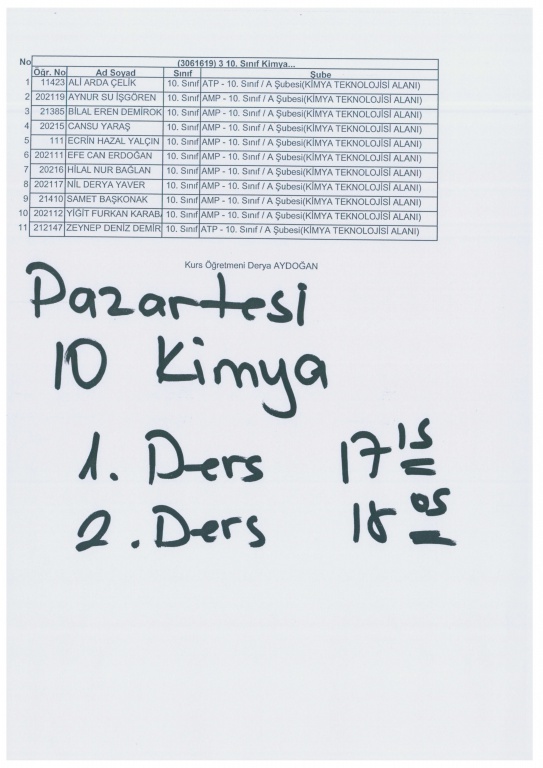 No
(3061619) 3 10. Sınıf Kimya...
Öğr. No Ad Soyad Sınıf Şube
1 11423 ALİ ARDA ÇELİK 10. Sınıf ATP - 10. Sınıf / A Şubesi(KİMYA TEKNOLOJİSİ ALANI)
2 202119 AYNUR SU İŞGÖREN 10. Sınıf AMP - 10. Sınıf / A Şubesi(KİMYA TEKNOLOJİSİ ALANI)
3 21385 BİLAL EREN DEMİROK 10. Sınıf AMP - 10. Sınıf / A Şubesi(KİMYA TEKNOLOJİSİ ALANI)
4 20215 CANSU YARAŞ 10. Sınıf AMP - 10. Sınıf / A Şubesi(KİMYA TEKNOLOJİSİ ALANI)
5 111 ECRİN HAZAL YALÇIN 10. Sınıf AMP - 10. Sınıf / A Şubesi(KİMYA TEKNOLOJİSİ ALANI)
6 202111 EFE CAN ERDOĞAN 10. Sınıf AMP - 10. Sınıf / A Şubesi(KİMYA TEKNOLOJİSİ ALANI)
7 20216 HİLAL NUR BAĞLAN 10. Sınıf AMP - 10. Sınıf / A Şubesi(KİMYA TEKNOLOJİSİ ALANI)
8 202117 NİL DERYA YAVER 10. Sınıf AMP - 10. Sınıf / A Şubesi(KİMYA TEKNOLOJİSİ ALANI)
9 21410 SAMET BAŞKONAK 10. Sınıf AMP - 10. Sınıf / A Şubesi(KİMYA TEKNOLOJİSİ ALANI)
10 202112 YİĞİT FURKAN KARABA 10. Sınıf AMP - 10. Sınıf / A Şubesi(KİMYA TEKNOLOJİSİ ALANI)
11 212147 ZEYNEP DENİZ DEMİR 10. Sınıf ATP - 10. Sınıf / A Şubesi(KİMYA TEKNOLOJİSİ ALANI)
Kurs Öğretmeni Derya AYDOĞAN
Pazartesi
10 Kimya
1. Ders 17 15
2. Ders 18 05